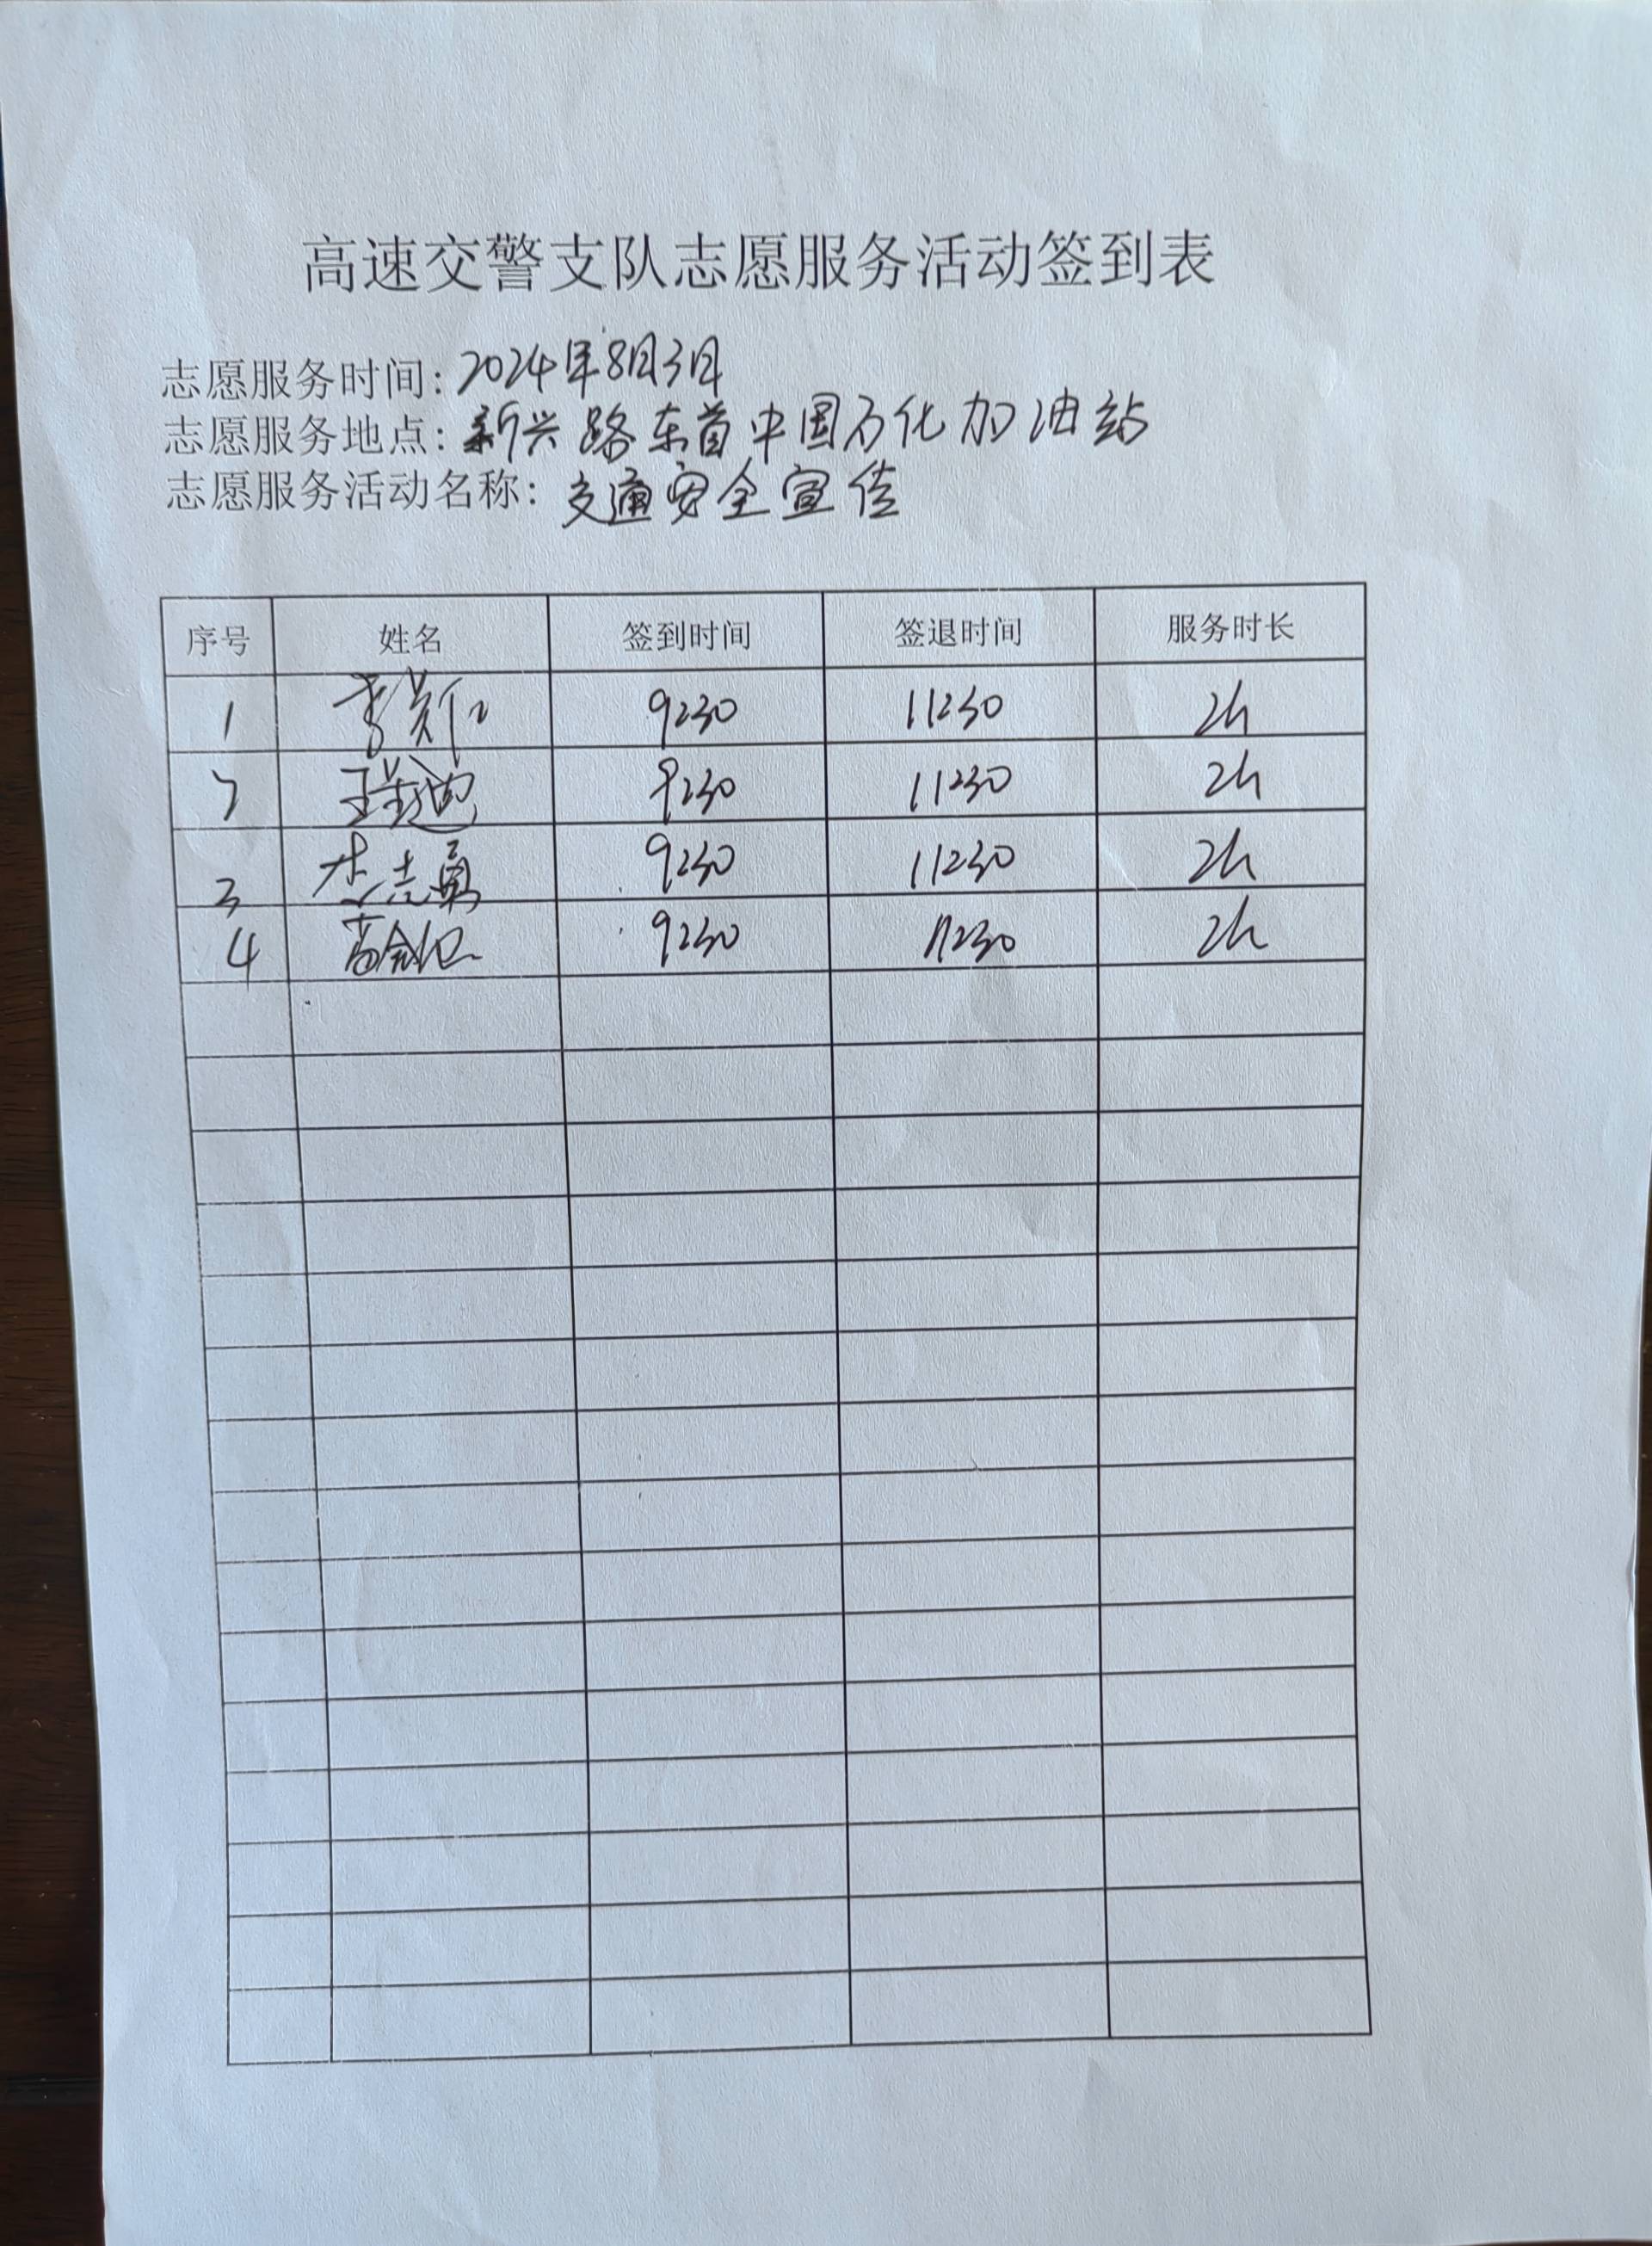 高速交警支队志愿服务活动签到表
志愿服务时间：2024年8月3日
志愿服务地点：新兴路东首中国石化加油站
志愿服务活动名称：交通安全宣传
序号 姓名 签到时间 签退时间 服务时长
1 9:30 11:30 2h
2 王瑞迪 9:30 11:30 2h
3 李志勇 9:30 11:30 2h
4 9:30 11:30 2h